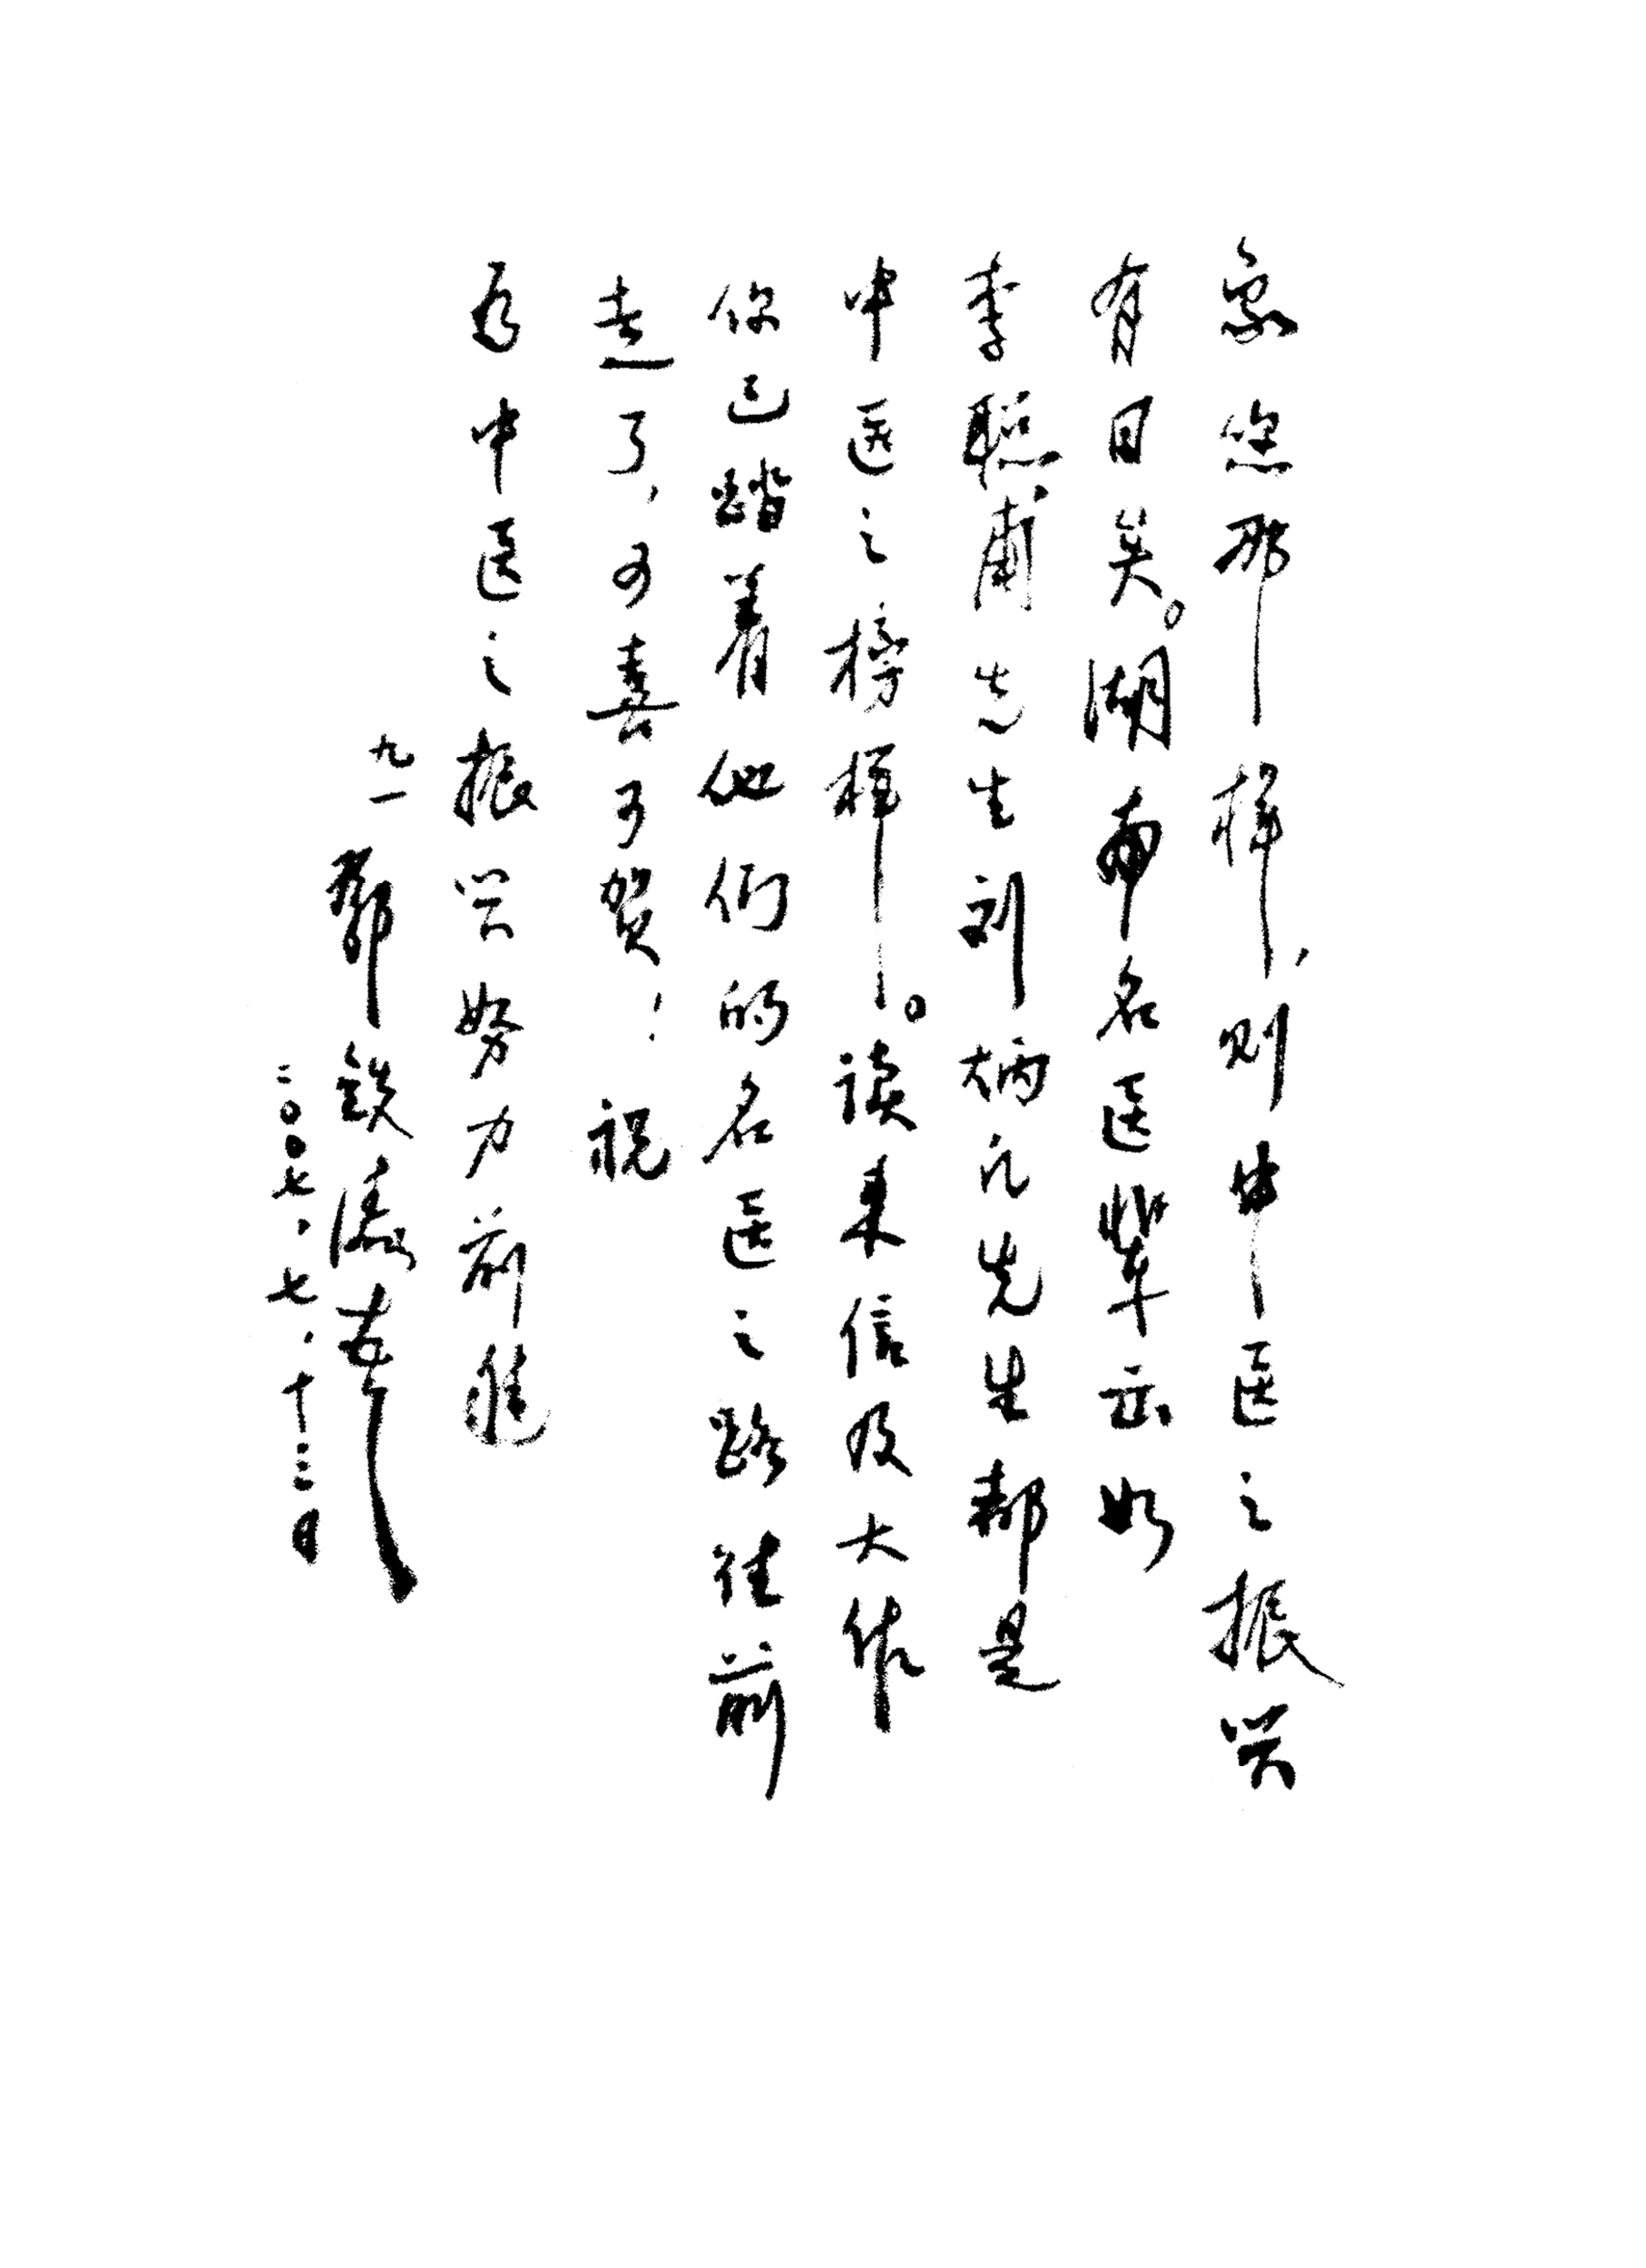 象您那样,则中医之振兴
有日矣。湖南名医辈出如
李聪甫先生刘炳凡先生都是
中医之榜样。读来信及大作
你已踏着他们的名医之路往前
走了,可喜可贺!祝
为中医之振兴努力前进
九一 邓铁涛
二〇〇七、七、十三日